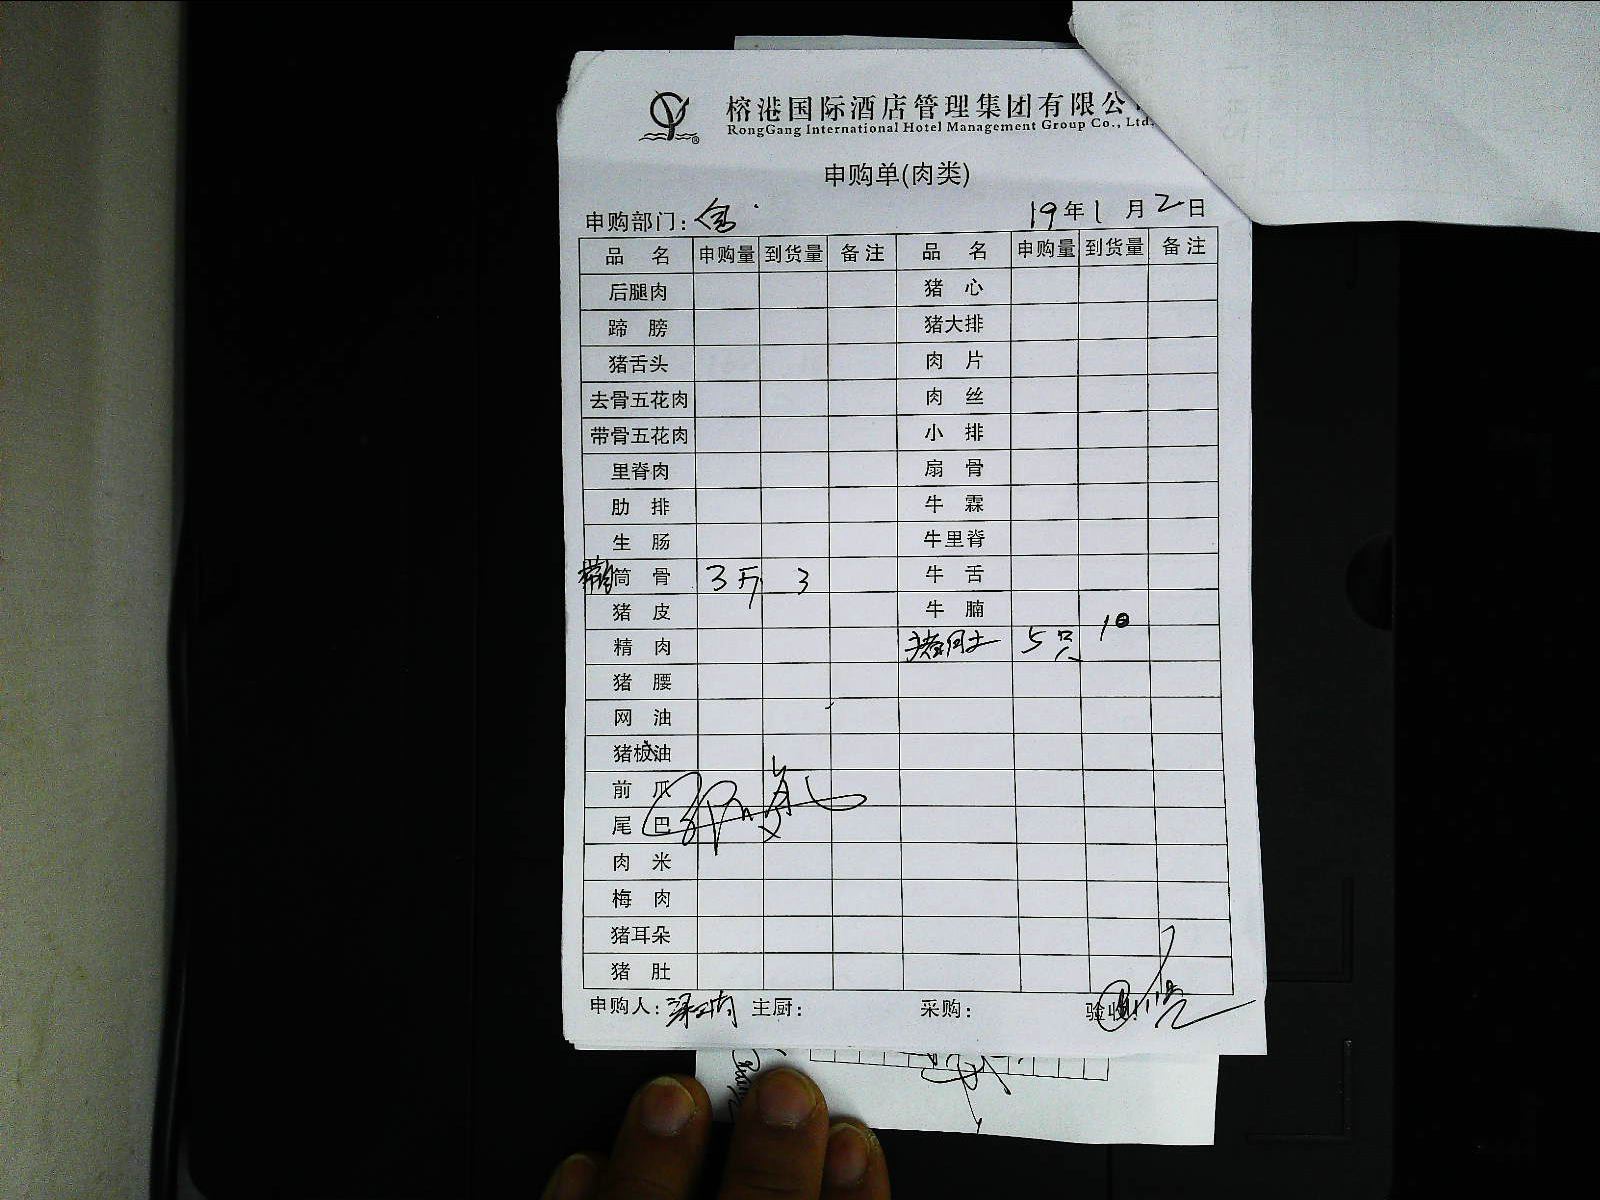 榕港国际酒店管理集团有限公
RongGang International Hotel Management Group Co., Ltd.
申购单(肉类)
申购部门: 19年1月2日
品名 申购量 到货量 备注 品名 申购量 到货量 备注
后腿肉 猪心
蹄膀 猪大排
猪舌头 肉片
去骨五花肉 肉丝
带骨五花肉 小排
里脊肉 扇骨
肋排 牛霖
生肠 牛里脊
筒骨 3斤 3 牛舌
猪皮 牛腩
精肉 猪肚 5只
猪腰
网油
猪板油
前爪
尾巴
肉米
梅肉
猪耳朵
猪肚
申购人: 主厨: 采购: 验收: